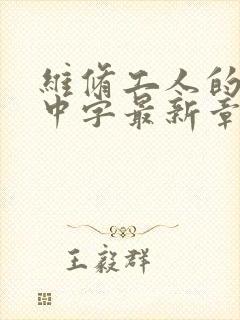 維脩工人的
中字最新章
王毅群